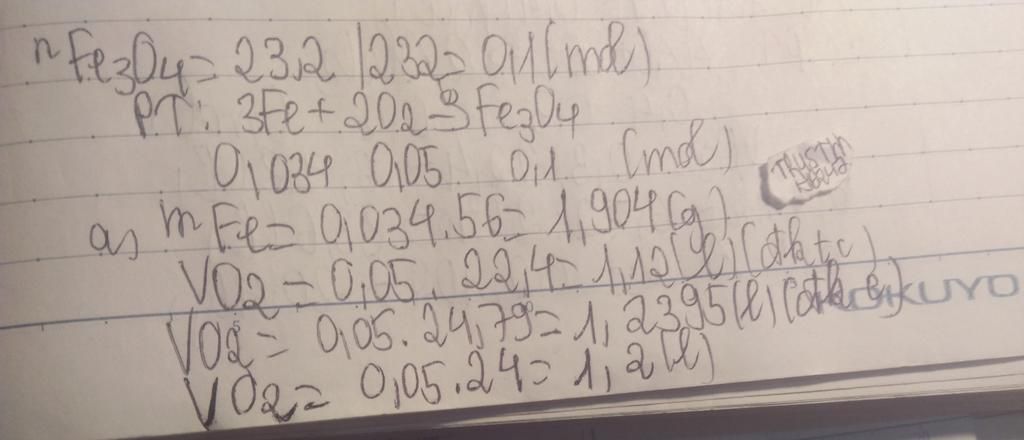 nFe3O4 = 23,2 / 232 = 0,1 (mol)
PT: 3Fe + 2O2 → Fe3O4
0,034 0,05 0,1 (mol)
a, mFe = 0,034.56 = 1,904 (g)
VO2 = 0,05. 22,4 = 1,12 (l) (đktc)
VO2 = 0,05.24,79 = 1,2395 (l) (đkc)
KOKUYO
VO2 = 0,05.24 = 1,2 (l)